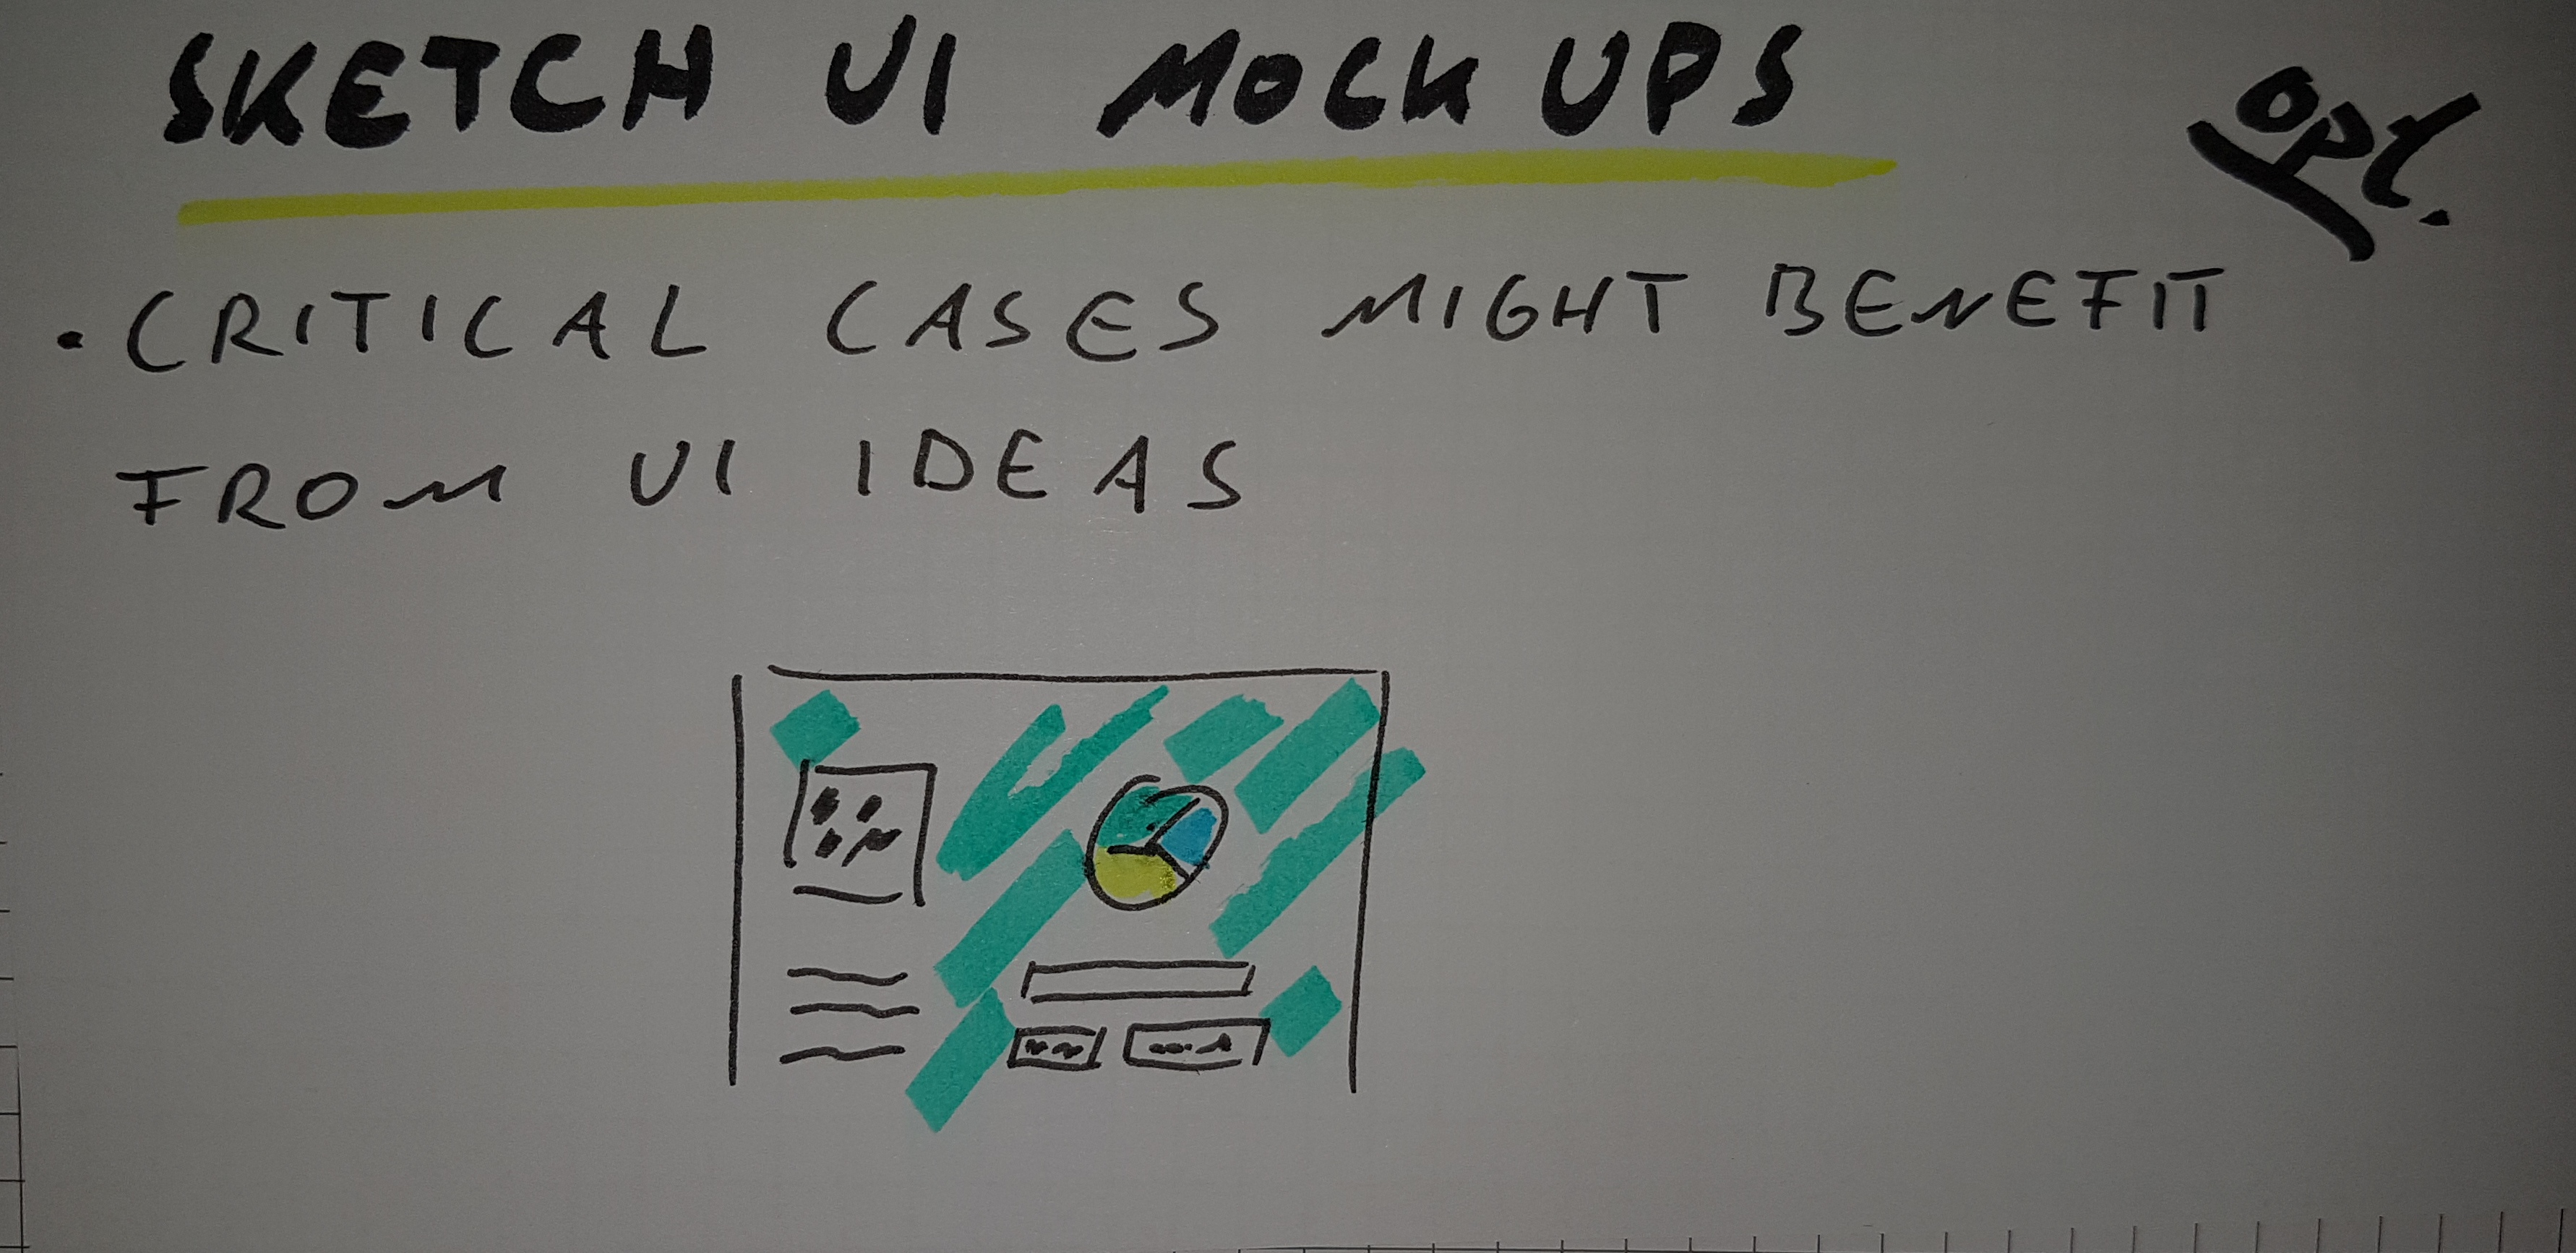 SKETCH UI MOCK UPS
opt.
• CRITICAL CASES MIGHT BENEFIT
FROM UI IDEAS